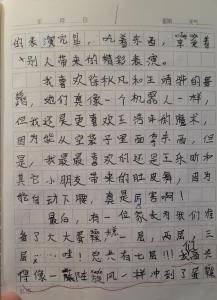 的表演完毕，吃着东西，享受着
别人带来的精彩表演。
我喜欢徐秋凡和王清骅的舞
蹈，她们真像一个机器人一样，
但我还是更喜欢王涛年的魔术，
因为能从空袋子里面拿东西，但
是，我最最喜欢的还是王乐昕和
其它小朋友带来的肚皮舞，因为
能自动下腰，真是厉害啊！
最后，有一位家长为我们准
备了大大蛋糕，一层，两层，三
层，……哇！总共有七层！！！我
们像一阵旋风一样冲到了蛋糕